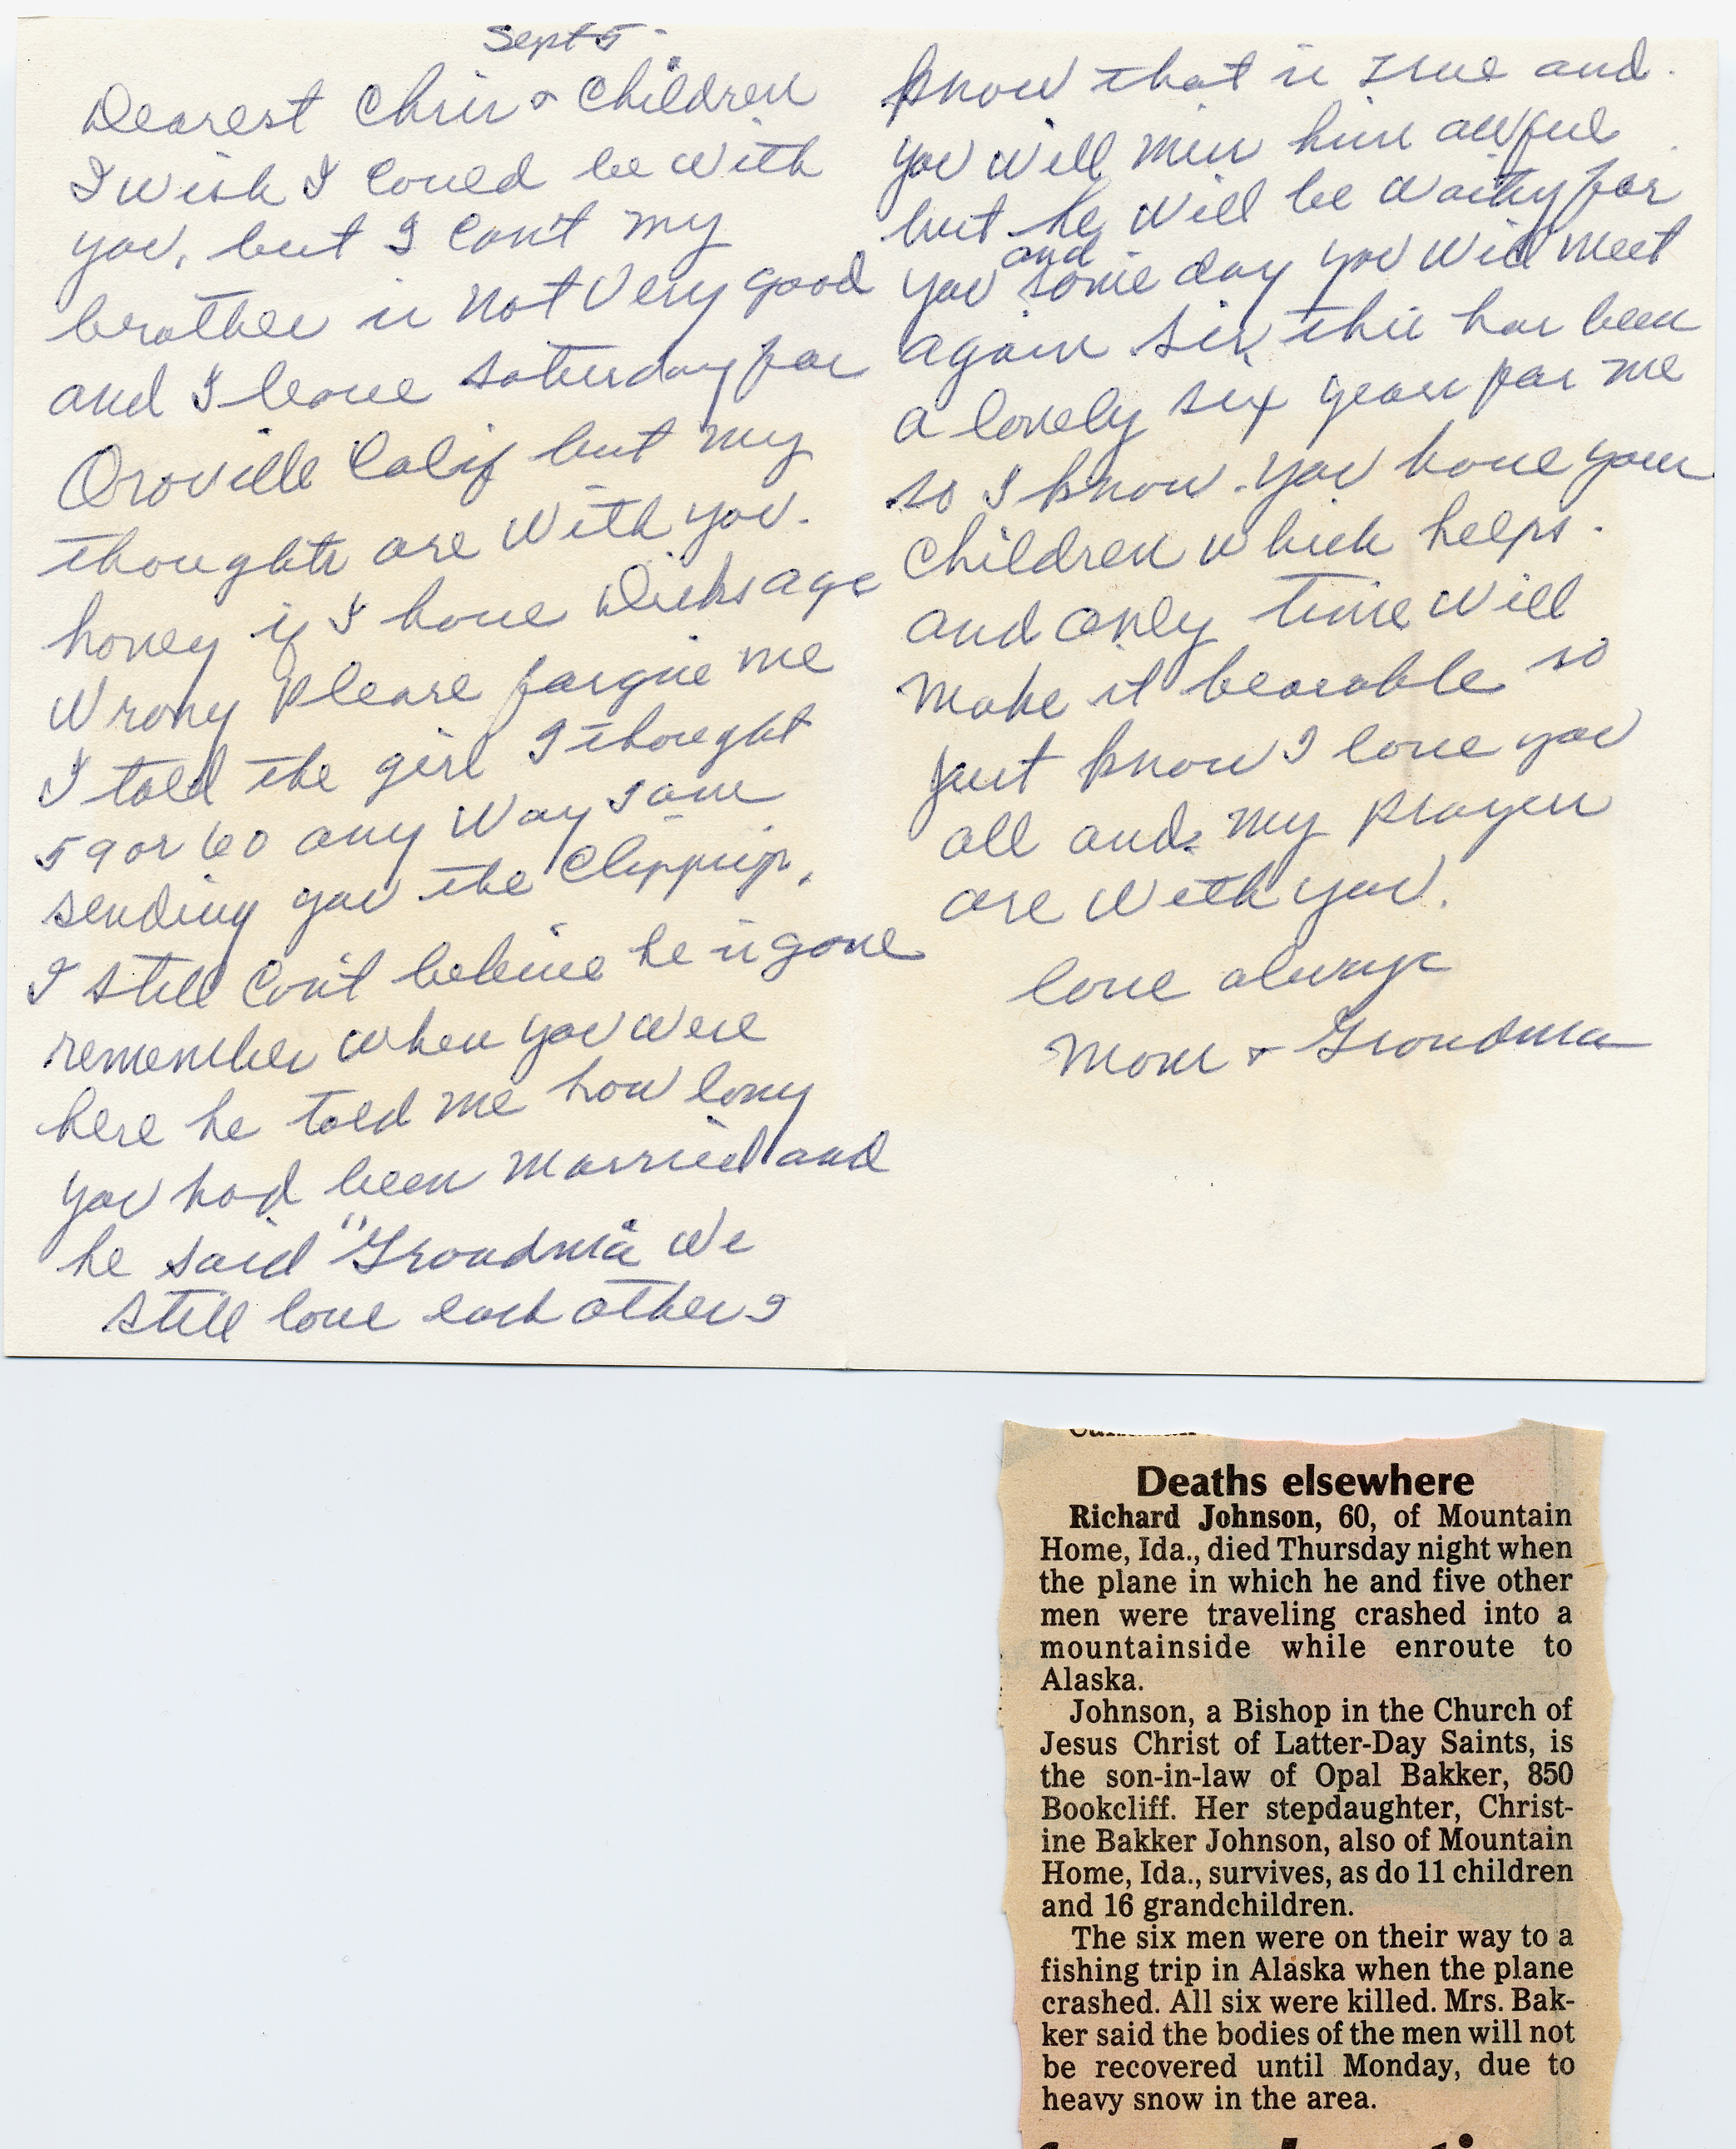 Sept 5 -
Dearest Chris & Children
I wish I could be with
you, but I can't my
brother is not very good
and I leave Saturday for
Oroville Calif but my
thoughts are with you.
honey if I have Dicks age
wrong please forgive me
I told the girl I thought
59 or 60 any way I am
sending you the clipping.
I still can't believe he is gone
remember when you were
here he told me how long
you had been married and
he said "Grandma we
still love each other I
know that is true and.
you will miss him awful
but he will be waiting for
you and some day you will meet
again this has been
a lonely six years for me
so I know. you have your
children which helps.
and only time will
make it bearable so
just know I love you
all and my prayers
are with you.
love always
Mom & Grandma
Deaths elsewhere
Richard Johnson, 60, of Mountain
Home, Ida., died Thursday night when
the plane in which he and five other
men were traveling crashed into a
mountainside while enroute to
Alaska.
Johnson, a Bishop in the Church of
Jesus Christ of Latter-Day Saints, is
the son-in-law of Opal Bakker, 850
Bookcliff. Her stepdaughter, Christ-
ine Bakker Johnson, also of Mountain
Home, Ida., survives, as do 11 children
and 16 grandchildren.
The six men were on their way to a
fishing trip in Alaska when the plane
crashed. All six were killed. Mrs. Bak-
ker said the bodies of the men will not
be recovered until Monday, due to
heavy snow in the area.